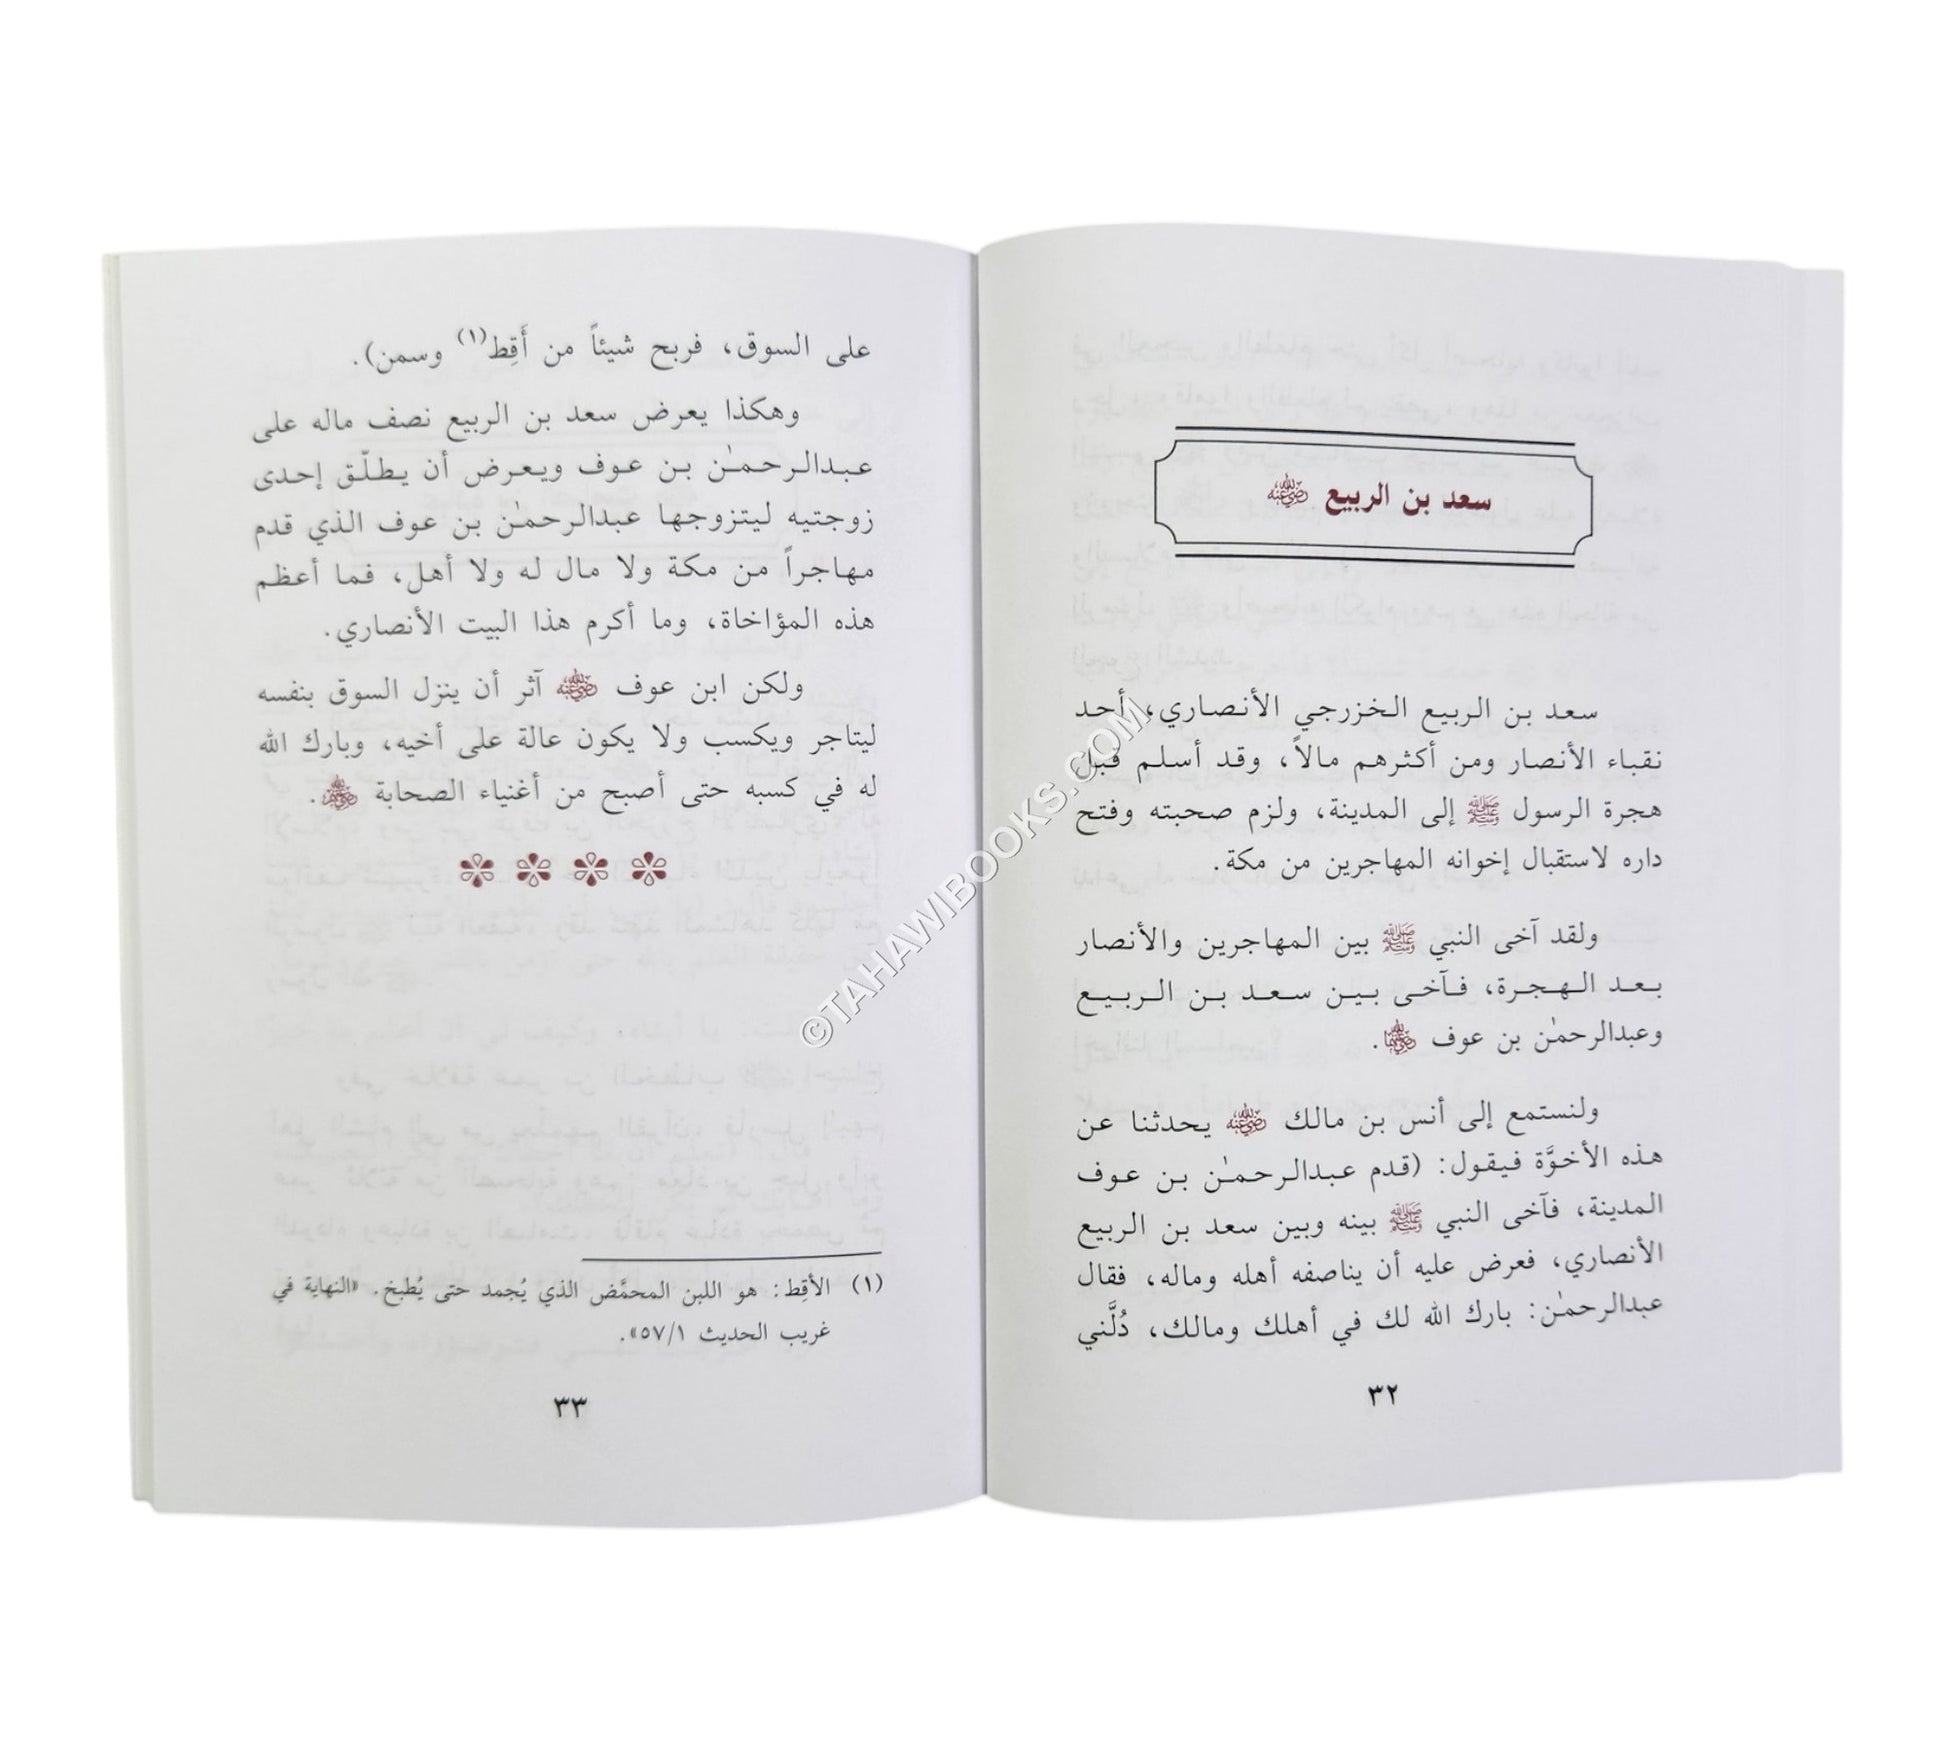 سعد بن الربيع رضي الله عنه
سعد بن الربيع الخزرجي الأنصاري، أحد
نقباء الأنصار ومن أكثرهم مالاً، وقد أسلم قبل
هجرة الرسول ﷺ إلى المدينة، ولزم صحبته وفتح
داره لاستقبال إخوانه المهاجرين من مكة.
ولقد آخى النبي ﷺ بين المهاجرين والأنصار
بعد الهجرة، فآخى بين سعد بن الربيع
وعبدالرحمٰن بن عوف رضي الله عنهما.
ولنستمع إلى أنس بن مالك رضي الله عنه يحدثنا عن
هذه الأخوَّة فيقول: (قدم عبدالرحمٰن بن عوف
المدينة، فآخى النبي ﷺ بينه وبين سعد بن الربيع
الأنصاري، فعرض عليه أن يناصفه أهله وماله، فقال
عبدالرحمٰن: بارك الله لك في أهلك ومالك، دُلَّني
٣٢
على السوق، فربح شيئاً من أَقِط(١) وسمن).
وهكذا يعرض سعد بن الربيع نصف ماله على
عبدالرحمٰن بن عوف ويعرض أن يطلّق إحدى
زوجتيه ليتزوجها عبدالرحمٰن بن عوف الذي قدم
مهاجراً من مكة ولا مال له ولا أهل، فما أعظم
هذه المؤاخاة، وما أكرم هذا البيت الأنصاري.
ولكن ابن عوف رضي الله عنه آثر أن ينزل السوق بنفسه
ليتاجر ويكسب ولا يكون عالة على أخيه، وبارك الله
له في كسبه حتى أصبح من أغنياء الصحابة رضي الله عنهم.
(١) الأقِط: هو اللبن المحمَّض الذي يُجمد حتى يُطبخ. «النهاية في
غريب الحديث ٥٧/١».
٣٣
©TAHAWIBOOKS.COM